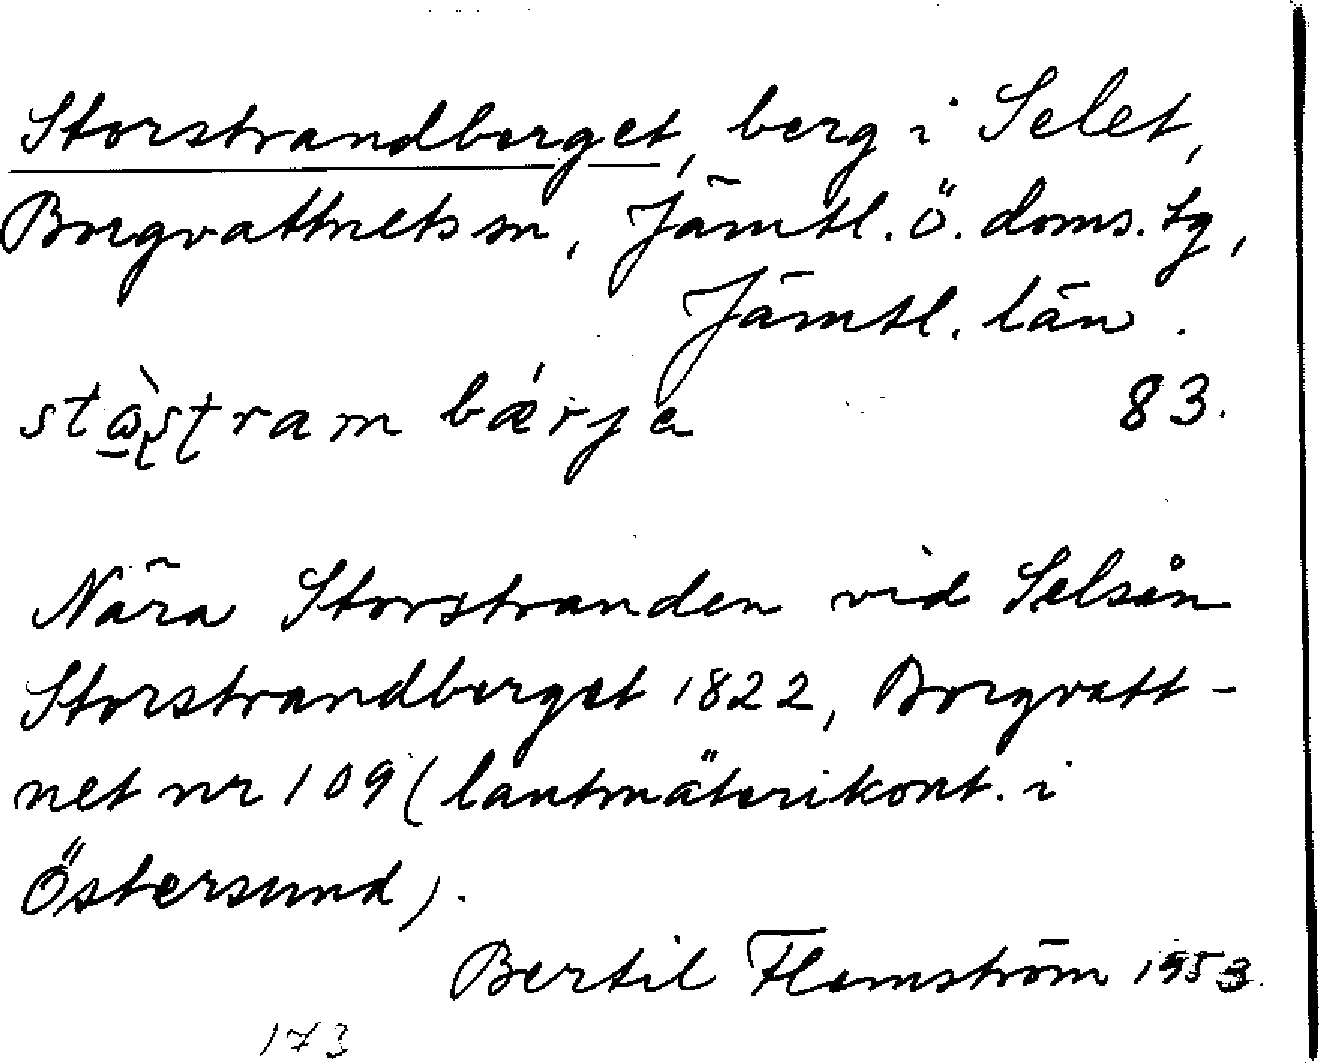 Storstrandberget, berg i Selet,
Borgvattnets sn, Jämtl. ö. doms. tg,
Jämtl. län.
bǽrja 83.
Nära Storstranden vid Selsån
Storstrandberget 1822, Borgvatt-
net nr 109 (lantmäterikont. i
Östersund).
Bertil Flemström 1953.
173